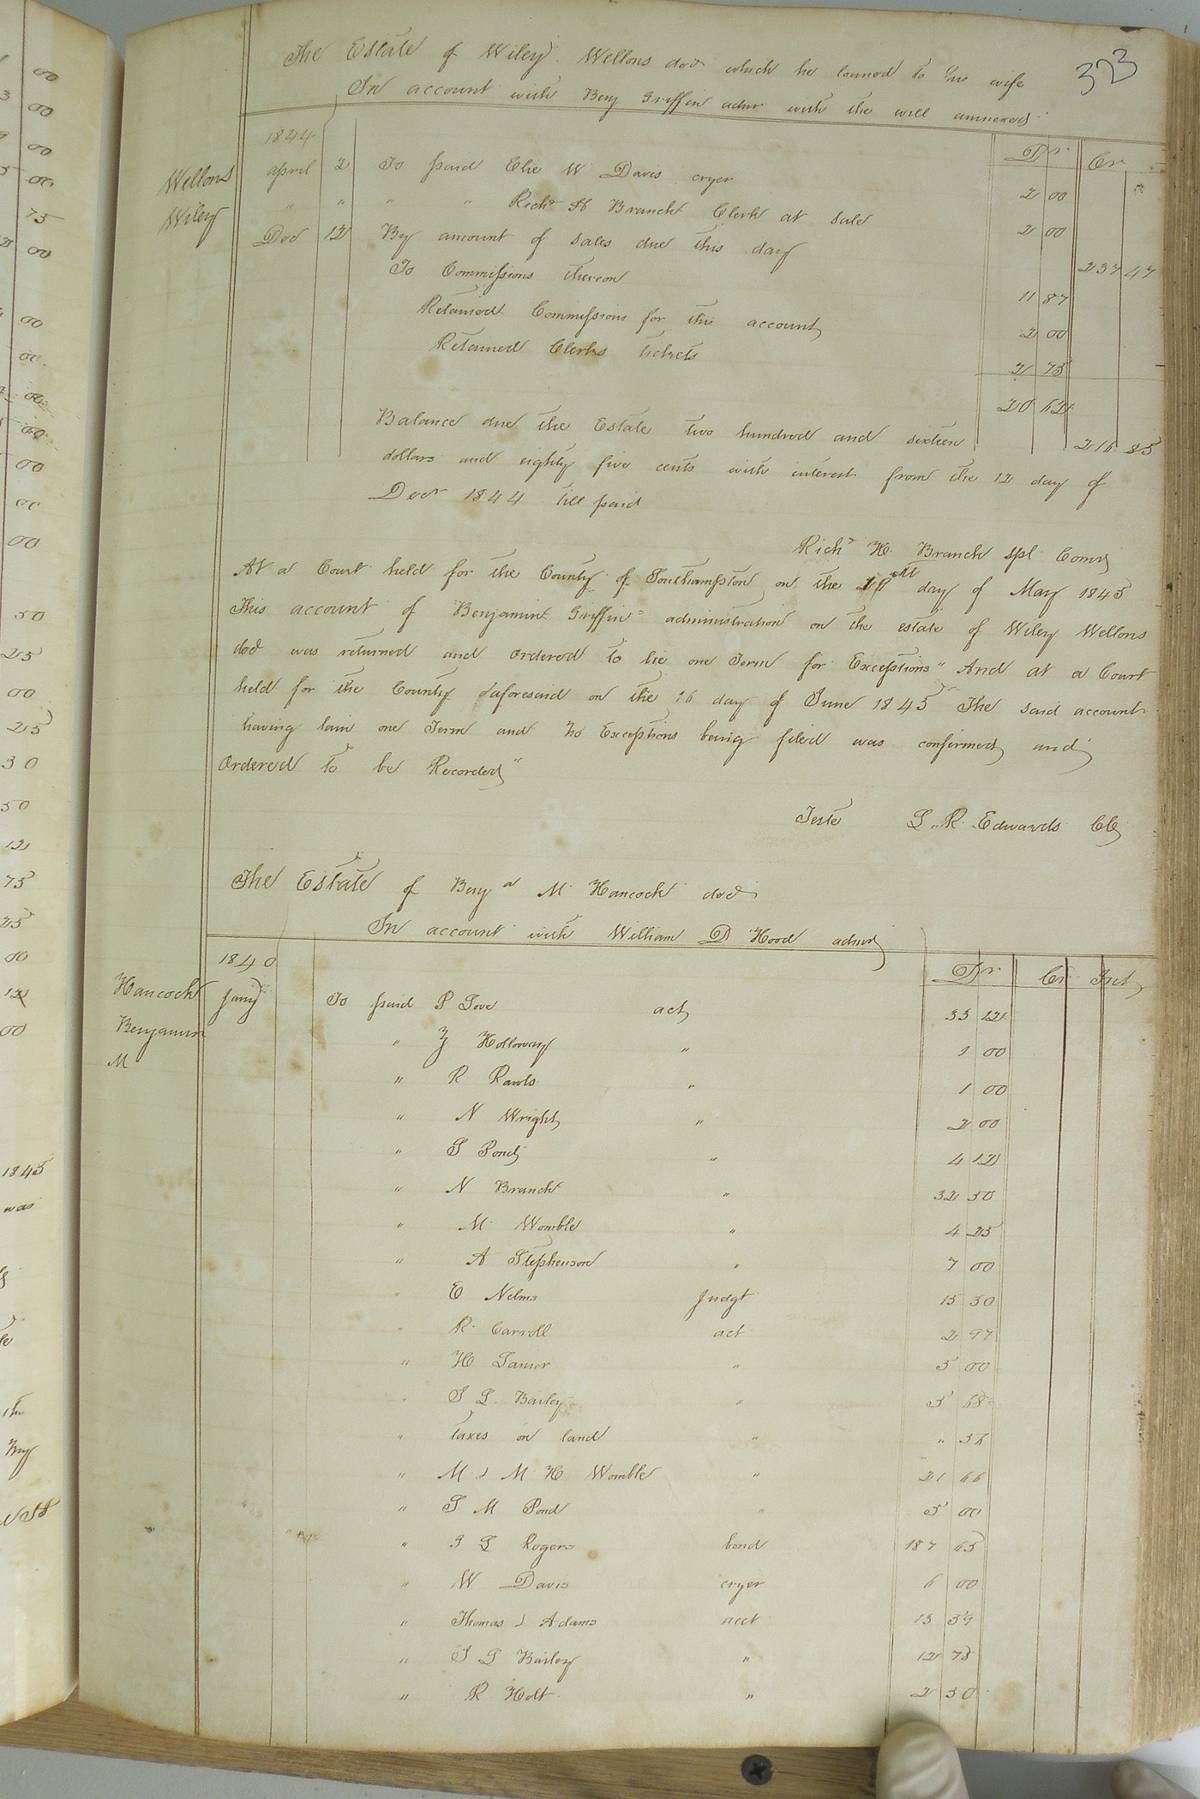 323
The Estate of Wiley Wellons decd which he loaned to his wife
In account with Benj Griffin admr with the will annexed
Dr Cr
Wellons
Wiley
1844
April 2 To paid Elie W Davis cryer 2 00
" " " " Richd H Branch Clerk at sale 2 00
Dec 12 By amount of sales due this day 237 47
To Commissions thereon 11 87
Retained Commissions for this account 2 00
Retained Clerks tickets 2 75
20 62
Balance due the Estate two hundred and sixteen 216 85
dollars and eighty five cents with interest from the 12 day of
Decr 1844 till paid
Richd H. Branch spl Comr
At a Court held for the County of Southampton on the day of May 1845
This account of Benjamin Griffin administration on the estate of Wiley Wellons
decd was returned and ordered to lie one Term for Exceptions" And at a Court
held for the County aforesaid on the 16 day of June 1845 The said account
having lain one Term and no Exceptions being filed was confirmed and
Ordered to be Recorded"
Teste L. R. Edwards Clk
The Estate of Benjn M. Hancock decd
In account with William D Hood admr
Dr Cr Int
Hancock
Benjamin
M
1840
Jany To paid P Love act 33 12
" Z Holloway " 9 00
" R Rawls " 1 00
" N Wright " 2 00
" S Pond " 4 12
" N Branch " 32 50
" M. Womble " 4 25
" A Stephenson " 7 00
" E Nelms Judgt 15 50
" R. Carroll act 2 97
" H Tanner " 5 00
" S L Bailey " 5 68
" Taxes on land " " 56
" M & M H Womble " 21 66
" S M Pond " 5 00
" L Rogers bond 187 65
" W Davis cryer 6 00
" Thomas & Adams acct 15 57
" S L Bailey " 12 75
" R Holt " 2 50